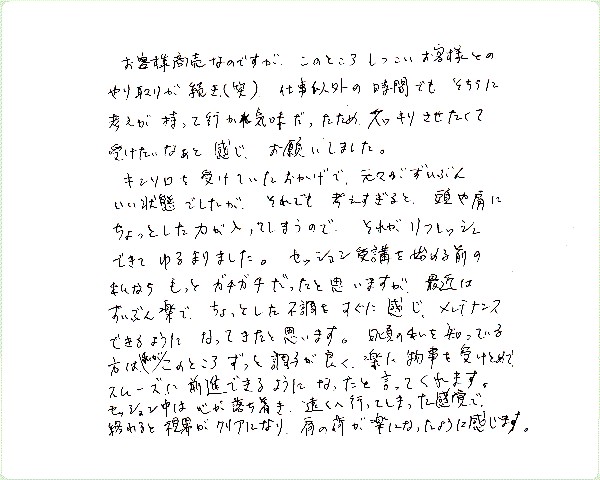 お客様商売なのですが、このところ しつこいお客様との
やり取りが続き(笑) 仕事以外の時間でも そちらに
考えが持って行かれ気味だったため、スッキリさせたくて
受けたいなあと感じ、お願いしました。
キネシロを受けていたおかげで、元々がずいぶん
いい状態でしたが、それでも考えすぎると、頭や肩に
ちょっとした力が入ってしまうので、それがリフレッシュ
できて ゆるまりました。セッション受講を始める前の
私なら もっと ガチガチだったと思いますが、最近は
ずいぶん楽で、ちょっとした不調をすぐに感じ、メンテナンス
できるように なってきたと思います。日頃の私を知っている
方は(私が)このところ ずっと調子が良く、楽に物事を受けとめて、
スムーズに前進できるようになったと言ってくれます。
セッション中は 心が落ち着き、遠くへ行ってしまった感覚で、
終わると視界がクリアになり、肩の荷が楽になったように感じます。